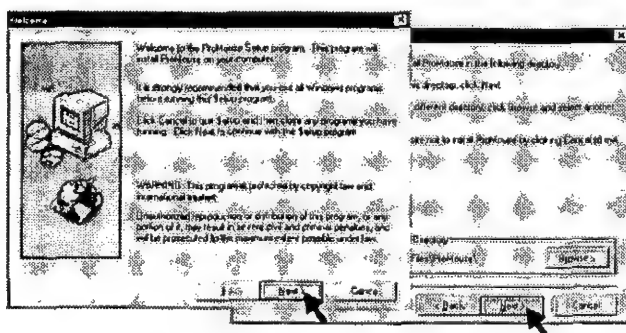 Welcome
Welcome to the ProMouse Setup program. This program will
install ProMouse on your computer.
It is strongly recommended that you exit all Windows programs
before running this Setup program.
Click Cancel to quit Setup and then close any programs you have
running. Click Next to continue with the Setup program.
WARNING: This program is protected by copyright law and
international treaties.
Unauthorized reproduction or distribution of this program, or any
portion of it, may result in severe civil and criminal penalties, and
will be prosecuted to the maximum extent possible under law.
< Back
Next >
Cancel
ProMouse in the following directory.
directory, click Next.
different directory, click Browse and select another
to install ProMouse by clicking Cancel to exit
Directory
Files\ProMouse
Browse...
< Back
Next >
Cancel